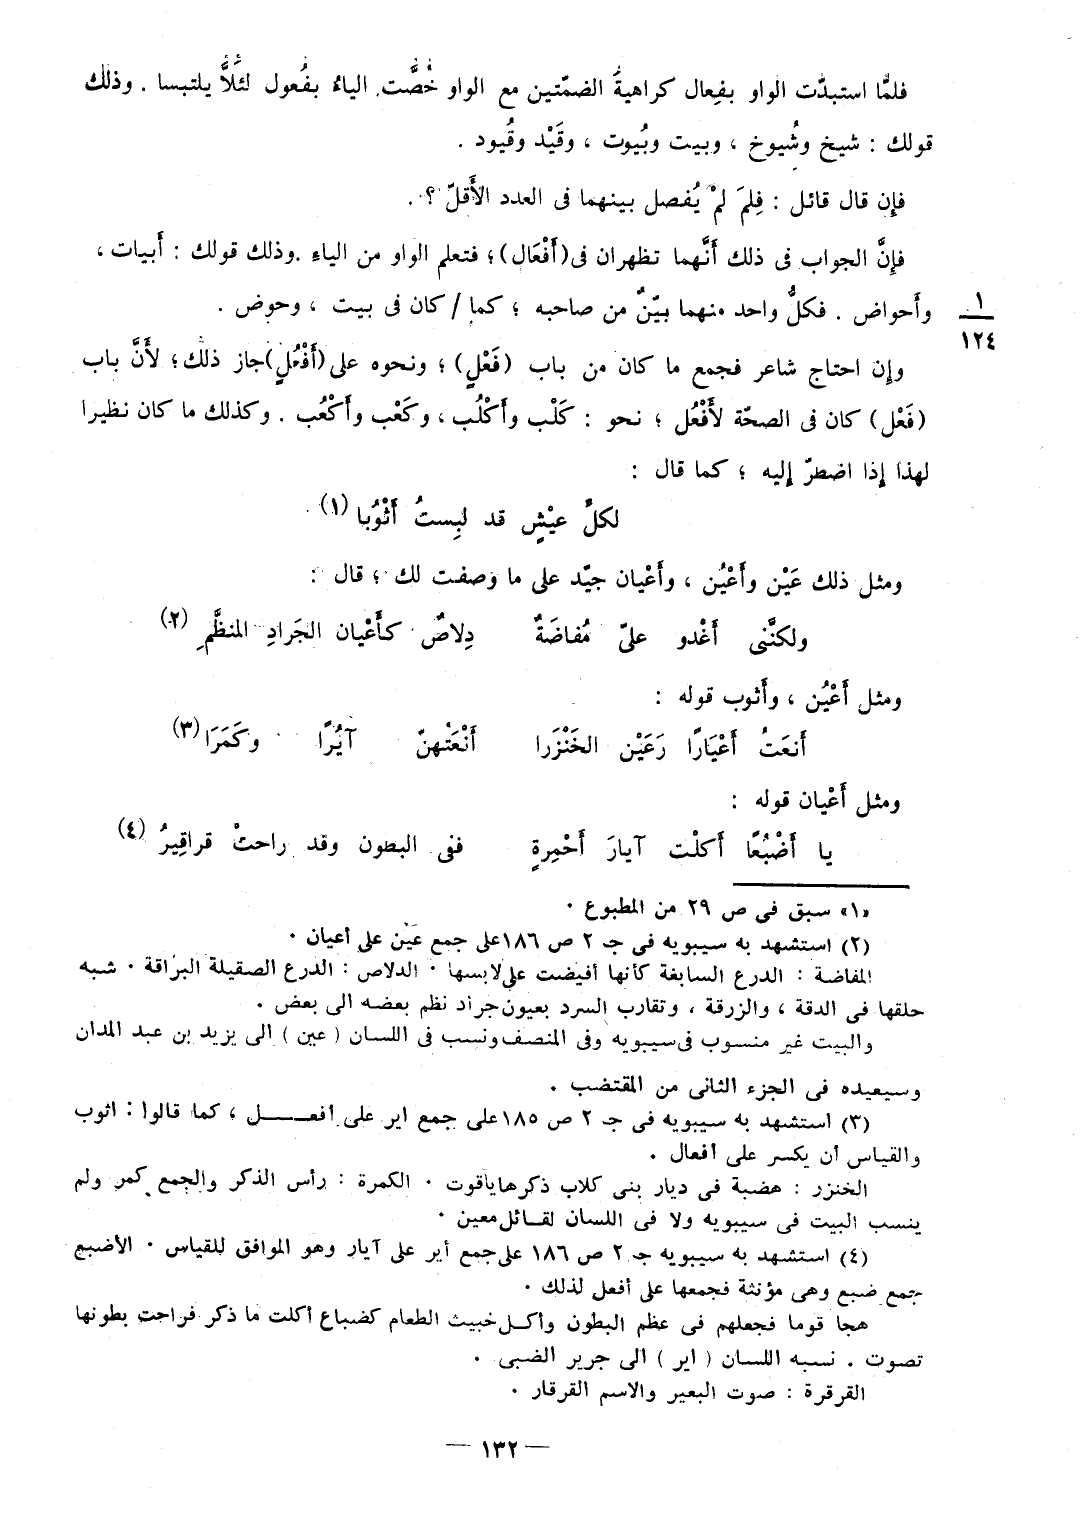 فلمَّا استبدَّت الواو بفِعال كراهيةُ الضمّتين مع الواو خُصَّت الياءُ بفُعول لئلَّا يلتبسا . وذلك
قولك : شيخ وشُيوخ ، وبيت وبُيوت ، وقَيْد وقُيود .
فإن قال قائل : فلِمَ لمْ يُفصل بينهما فى العدد الأَقلّ ؟ .
فإنَّ الجواب فى ذلك أَنَّهما تظهران فى (أَفْعَال) ؛ فتعلم الواو من الياءِ . وذلك قولك : أَبيات ،
وأَحواض . فكلُّ واحد منهما بيّنٌ من صاحبه ؛ كما / كان فى بيت ، وحوض .
١
١٢٤
وإن احتاج شاعر فجمع ما كان من باب (فَعْلٍ) ؛ ونحوه على (أَفْعُلٍ) جاز ذلك ؛ لأَنَّ باب
(فَعْل) كان فى الصحّة لأَفْعُل ؛ نحو : كَلْب وأَكْلُب ، وكَعْب وأَكْعُب . وكذلك ما كان نظيرا
لهذا إذا اضطرّ إليه ؛ كما قال :
لكلِّ عيْشٍ قد لبِستُ أَثْوُبا (١) .
ومثل ذلك عَيْن وأَعْيُن ، وأَعْيان جيّد على ما وصفت لك ؛ قال :
ولكنَّنى أَغْدو علىّ مُفاضَةٌ دِلاصٌ كأَعْيان الجَرادِ المنظَّمِ (٢)
ومثل أَعْيُن ، وأَثوب قوله :
أَنعَتُ أَعْيَارًا رَعَيْن الخَنْزَرا أَنْعَتُهنّ آيُرًا وكَمَرَا (٣)
ومثل أَعْيان قوله :
يا أَضْبُعًا أَكلْت آيارَ أَحْمِرةٍ ففى البطون وقد راحتْ قراقِيرُ (٤)
«١» سبق فى ص ٢٩ من المطبوع .
(٢) استشهد به سيبويه فى جـ ٢ ص ١٨٦ على جمع عين على أعيان .
المفاضة : الدرع السابغة كأنها أفيضت على لابسها . الدلاص : الدرع الصقيلة البراقة . شبه
حلقها فى الدقة ، والزرقة ، وتقارب السرد بعيون جراد نظم بعضه الى بعض .
والبيت غير منسوب فى سيبويه وفى المنصف ونسب فى اللسان ( عين ) الى يزيد بن عبد المدان
وسيعيده فى الجزء الثانى من المقتضب .
(٣) استشهد به سيبويه فى جـ ٢ ص ١٨٥ على جمع اير على أفعــــل ، كما قالوا : اثوب
والقياس أن يكسر على أفعال .
الخنزر : هضبة فى ديار بنى كلاب ذكرها ياقوت . الكمرة : رأس الذكر والجمع كمر ولم
ينسب البيت فى سيبويه ولا فى اللسان لقــائل معين .
(٤) استشهد به سيبويه جـ ٢ ص ١٨٦ على جمع أير على آيار وهو الموافق للقياس . الأضبع
جمع ضبع وهى مؤنثة فجمعها على أفعل لذلك .
هجا قوما فجعلهم فى عظم البطون وأكــل خبيث الطعام كضباع أكلت ما ذكر فراحت بطونها
تصوت . نسبه اللسان ( اير ) الى جرير الضبى .
القرقرة : صوت البعير والاسم القرقار .
— ١٣٢ —